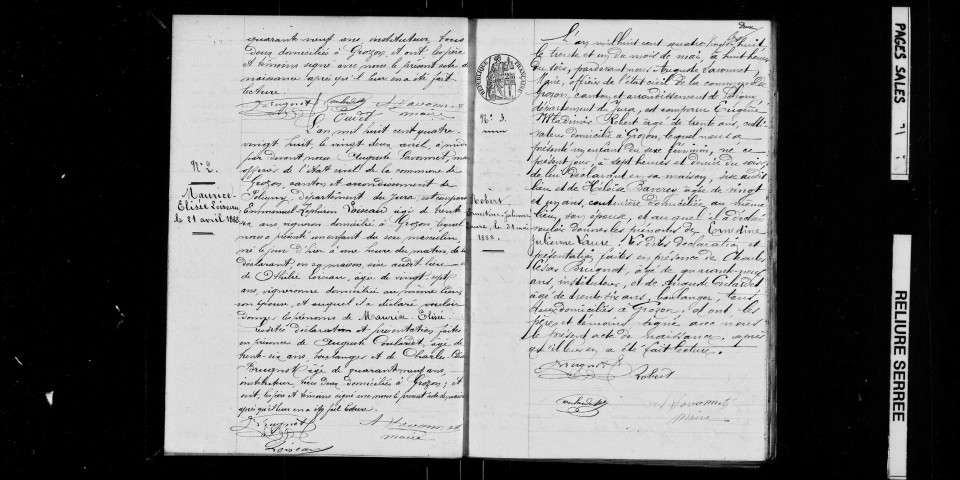 quarante neuf ans, instituteur, tous
deux domiciliés à Grozon, et ont le père
et témoins signé avec nous le présent acte de
naissance après qu'il leur en a été fait
lecture.
Brugnot
maire
N° 2.
Maurice
Elisée Loiseau
le 21 avril 1888
L'an mil huit cent quatre
vingt huit, le vingt deux avril, à
par devant nous Auguste
officier de l'état civil de la commune de
Grozon, canton et arrondissement de
Poligny, département du Jura, est comparu
Emmanuel Loiseau âgé de trente
six ans, vigneron domicilié à Grozon, lequel
nous a présenté un enfant du sexe masculin
né le jour d'hier à une heure du matin, de lui
déclarant, en sa maison, sise audit lieu
de Othilie Loiseau, âgée de vingt sept
ans, vigneronne domiciliée au même lieu,
son épouse, et auquel il a déclaré vouloir
donner les prénoms de Maurice Elisée.
Lesdites déclaration et présentation faites
en présence de Auguste âgé de
trente six ans, boulanger et de Charles César
Brugnot âgé de quarante neuf ans,
instituteur, tous deux domiciliés à Grozon; et
ont, le père et témoins signé avec nous le présent acte de naissance
après qu'il leur en a été fait lecture.
Brugnot
maire
Loiseau
Deux
RÉPUBLIQUE FRANÇAISE
N° 3.
Robert
Ernestine Julienne
Laure, le 31 mai
1888.
L'an mil huit cent quatre vingt huit,
le trente et un du mois de mai, à huit heures
du soir, pardevant nous Auguste
Maire, officier de l'état civil de la commune de
Grozon, canton et arrondissement de Poligny,
département du Jura, est comparu Eugène
Wladimir Robert âgé de trente ans, culti-
vateur domicilié à Grozon, lequel nous a
présenté un enfant du sexe féminin, né ce
présent jour, à sept heures et demie du soir,
de lui déclarant en sa maison, sise audit
lieu et de Héloïse âgée de vingt
et un ans, couturière domiciliée au même
lieu, son épouse, et auquel il a déclaré
vouloir donner les prénoms de Ernestine
Julienne Laure. Lesdites déclaration et
présentation faites en présence de Charles
César Brugnot, âgé de quarante neuf
ans, instituteur, et de Auguste
âgé de trente six ans, boulanger, tous
deux domiciliés à Grozon, et ont les
père et témoins signé avec nous
le présent acte de naissance, après
qu'il leur en a été fait lecture.
Brugnot
Robert
maire
PAGES SALES
RELIURE SERREE